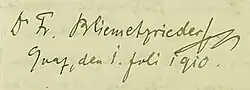 Dr Fr. Bliemetzrieder
Graz, den 1. Juli 1910.